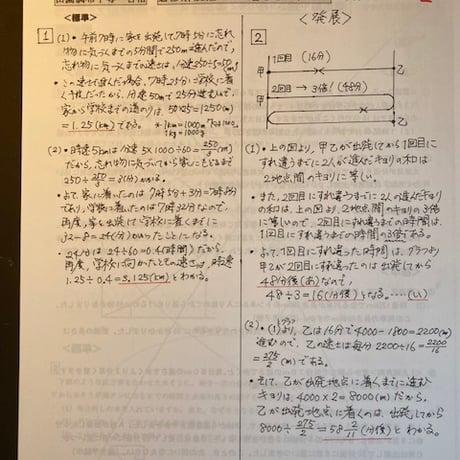 <標準>
1
(1)・午前7時に家を出発して7時5分に忘れ
物に気づくまでの5分間で250m進んだので、
忘れ物に気づくまでの速さは、分速250÷5=50(m)
・この速さで進んだ場合、7時25分に学校に着
く予定だったから、分速50mで25分進むので、
家から学校までの道のりは、50×25=1250(m)
=1.25(km)である。
*1km=1000m
1kg=1000g
(2)・時速5kmは分速5×1000÷60=250/3(m)
だから、忘れ物に気づいてから家にもどるまで
250÷250/3=3(分)かかる。
・よって、家に着いたのは7時5分+3分=7時8分
であり、学校に着いたのは7時32分なので、
再度、家を出発して学校に着くまでに
32-8=24(分)かかったことになる。
・24分は24÷60=0.4(時間)だから、
再度、学校に向かったときの速さは、時速
1.25÷0.4=3.125(km)とわかる。
<発展>
2
1回目(16分)
甲
乙
2回目→3倍!(48分)
甲
乙
(1)・上の図より、甲乙が出発してから1回目に
すれ違うまでに2人が進んだキョリの和は
2地点間のキョリに等しい。
・また、2回目にすれ違うまでに2人の進んだキョリ
の和は、上の図より、2地点間のキョリの3倍
に等しいので、2回目にすれ違うまでの時間は、
1回目にすれ違うまでの時間の3倍である
・よって、1回目にすれ違った時間は、グラフより
甲乙が2回目にすれ違ったのは出発してから
48分後(あ)なので、
48÷3=16(分後)となる。……(い)
(2)・(1)グラフより、乙は16分で4000-1800=2200(m)
進むので、乙の速さは毎分2200÷16=2200/16
=275/2(m)である。
・そして、乙が出発地点に着くまでに進む
キョリは、4000×2=8000(m)だから、
乙が出発地点に着くのは、出発してから
8000÷275/2=58 2/11(分後)とわかる。